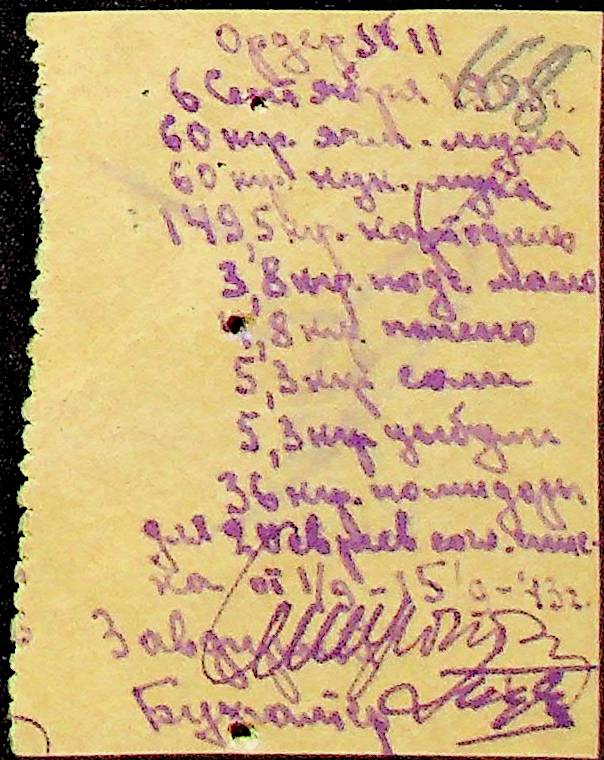 Ордер № 11
168
6 Сентября
60 кгр. ячм. мука
60 кгр. кук. мука
149,5 кгр. картофелю
3,8 кгр. подс. масло
,8 кгр. пшено
5,3 кгр соли
5,3 кгр цыбули
36 кгр. помидоры
для евреев согл. спис-
ка от 1/9-15/9-43г.
Завд
Бухгалтер